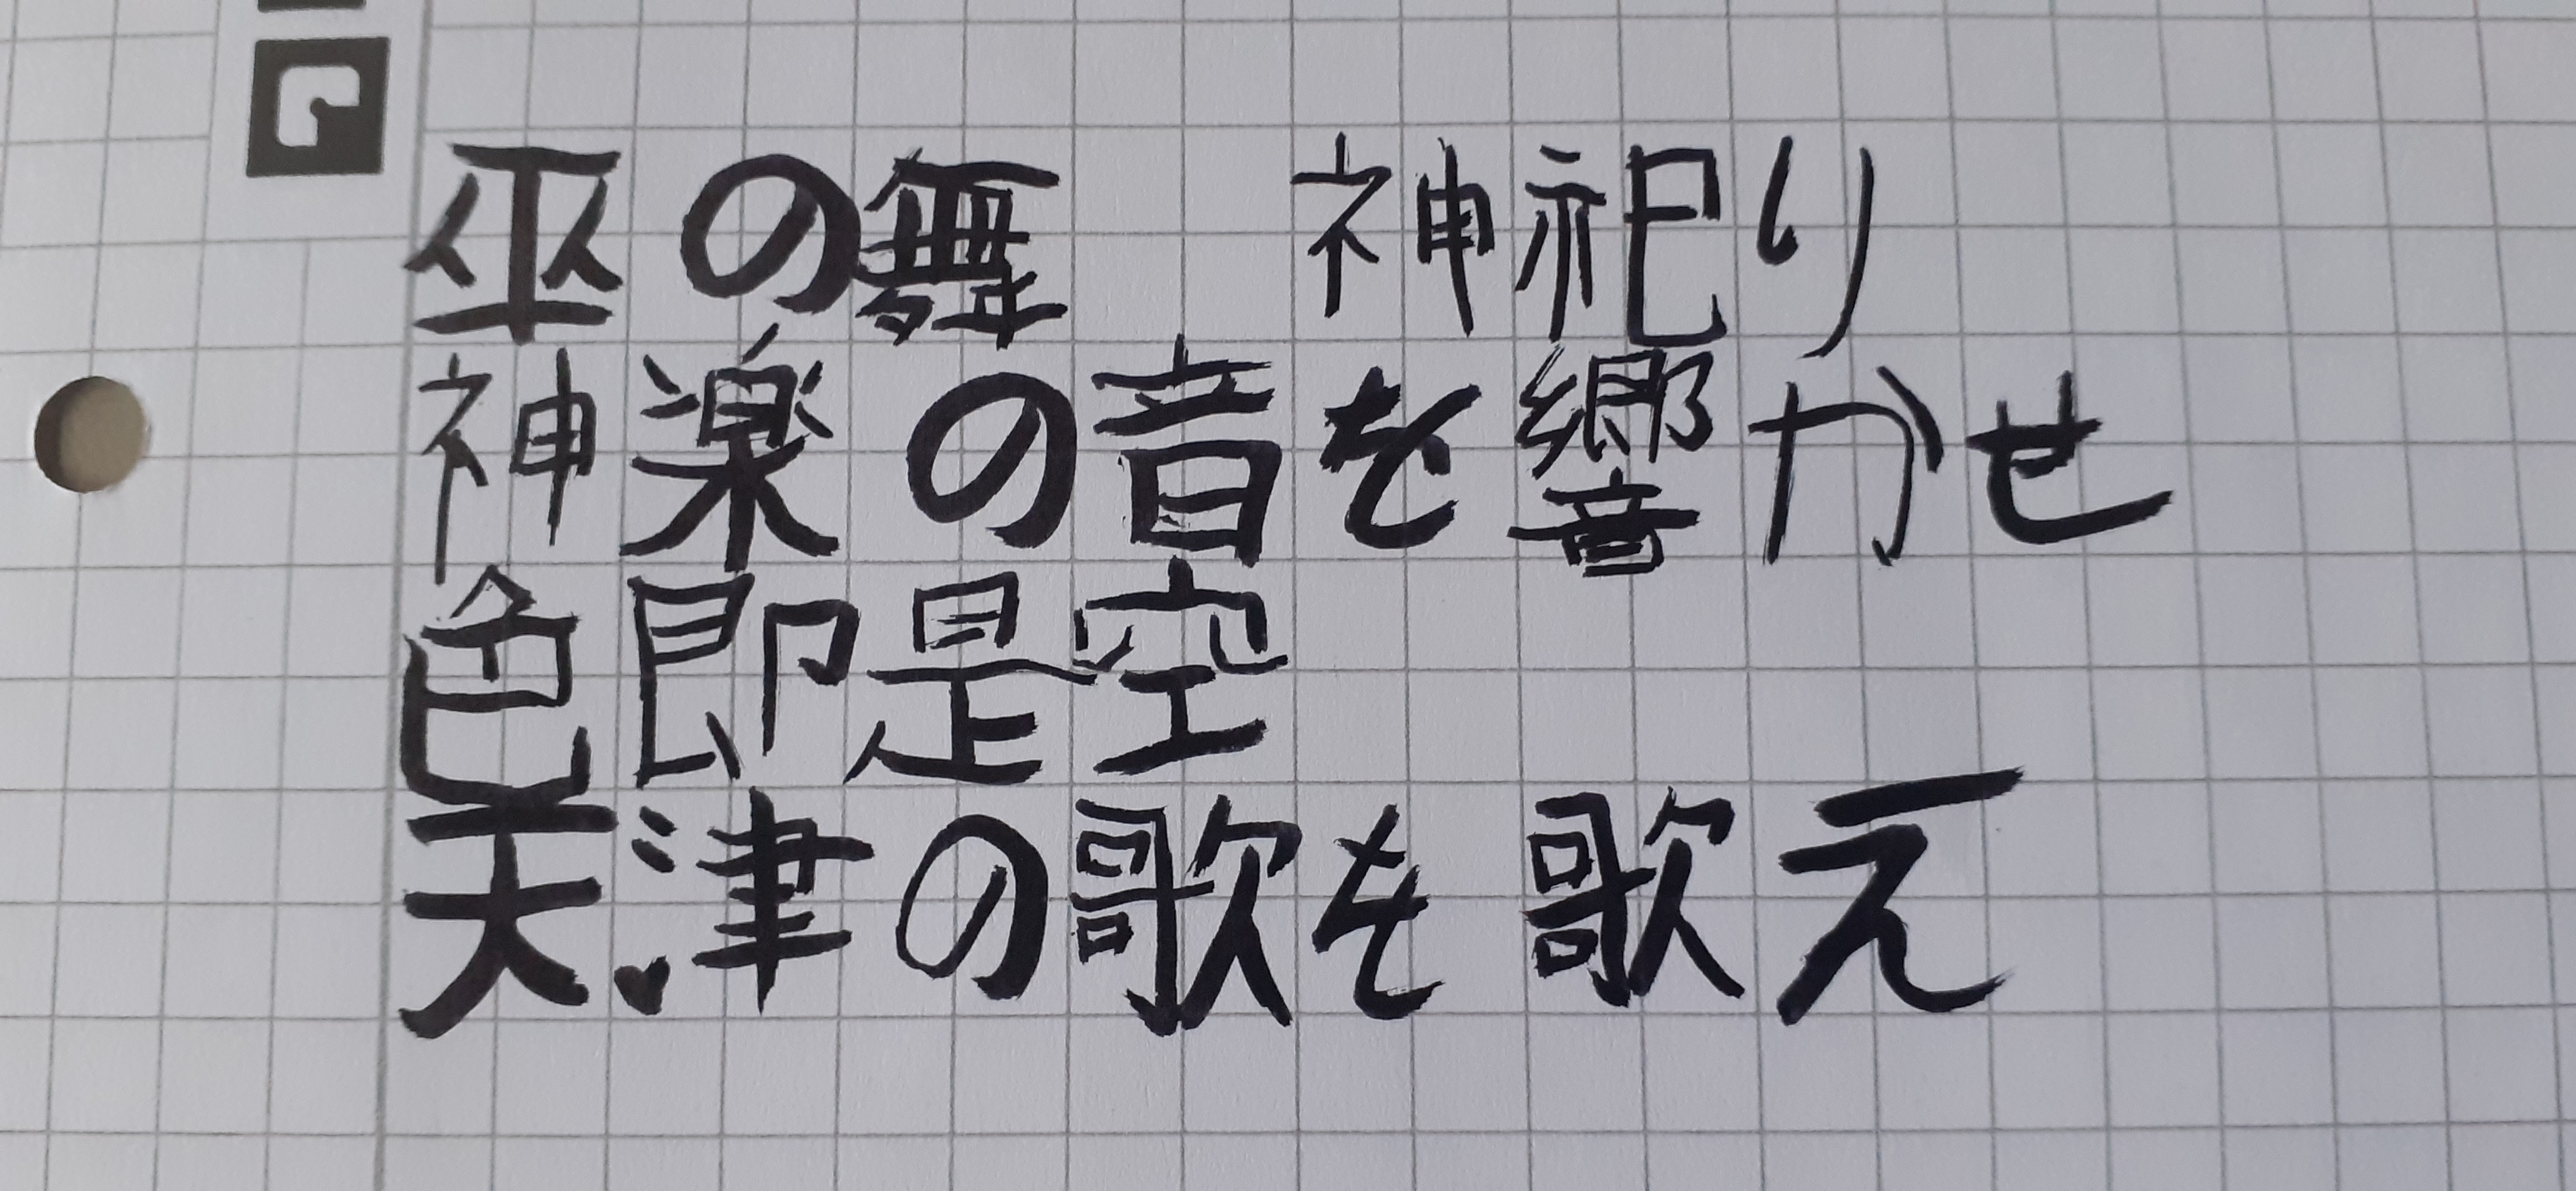 巫の舞　神祀り
神楽の音を響かせ
色即是空
天津の歌を歌え